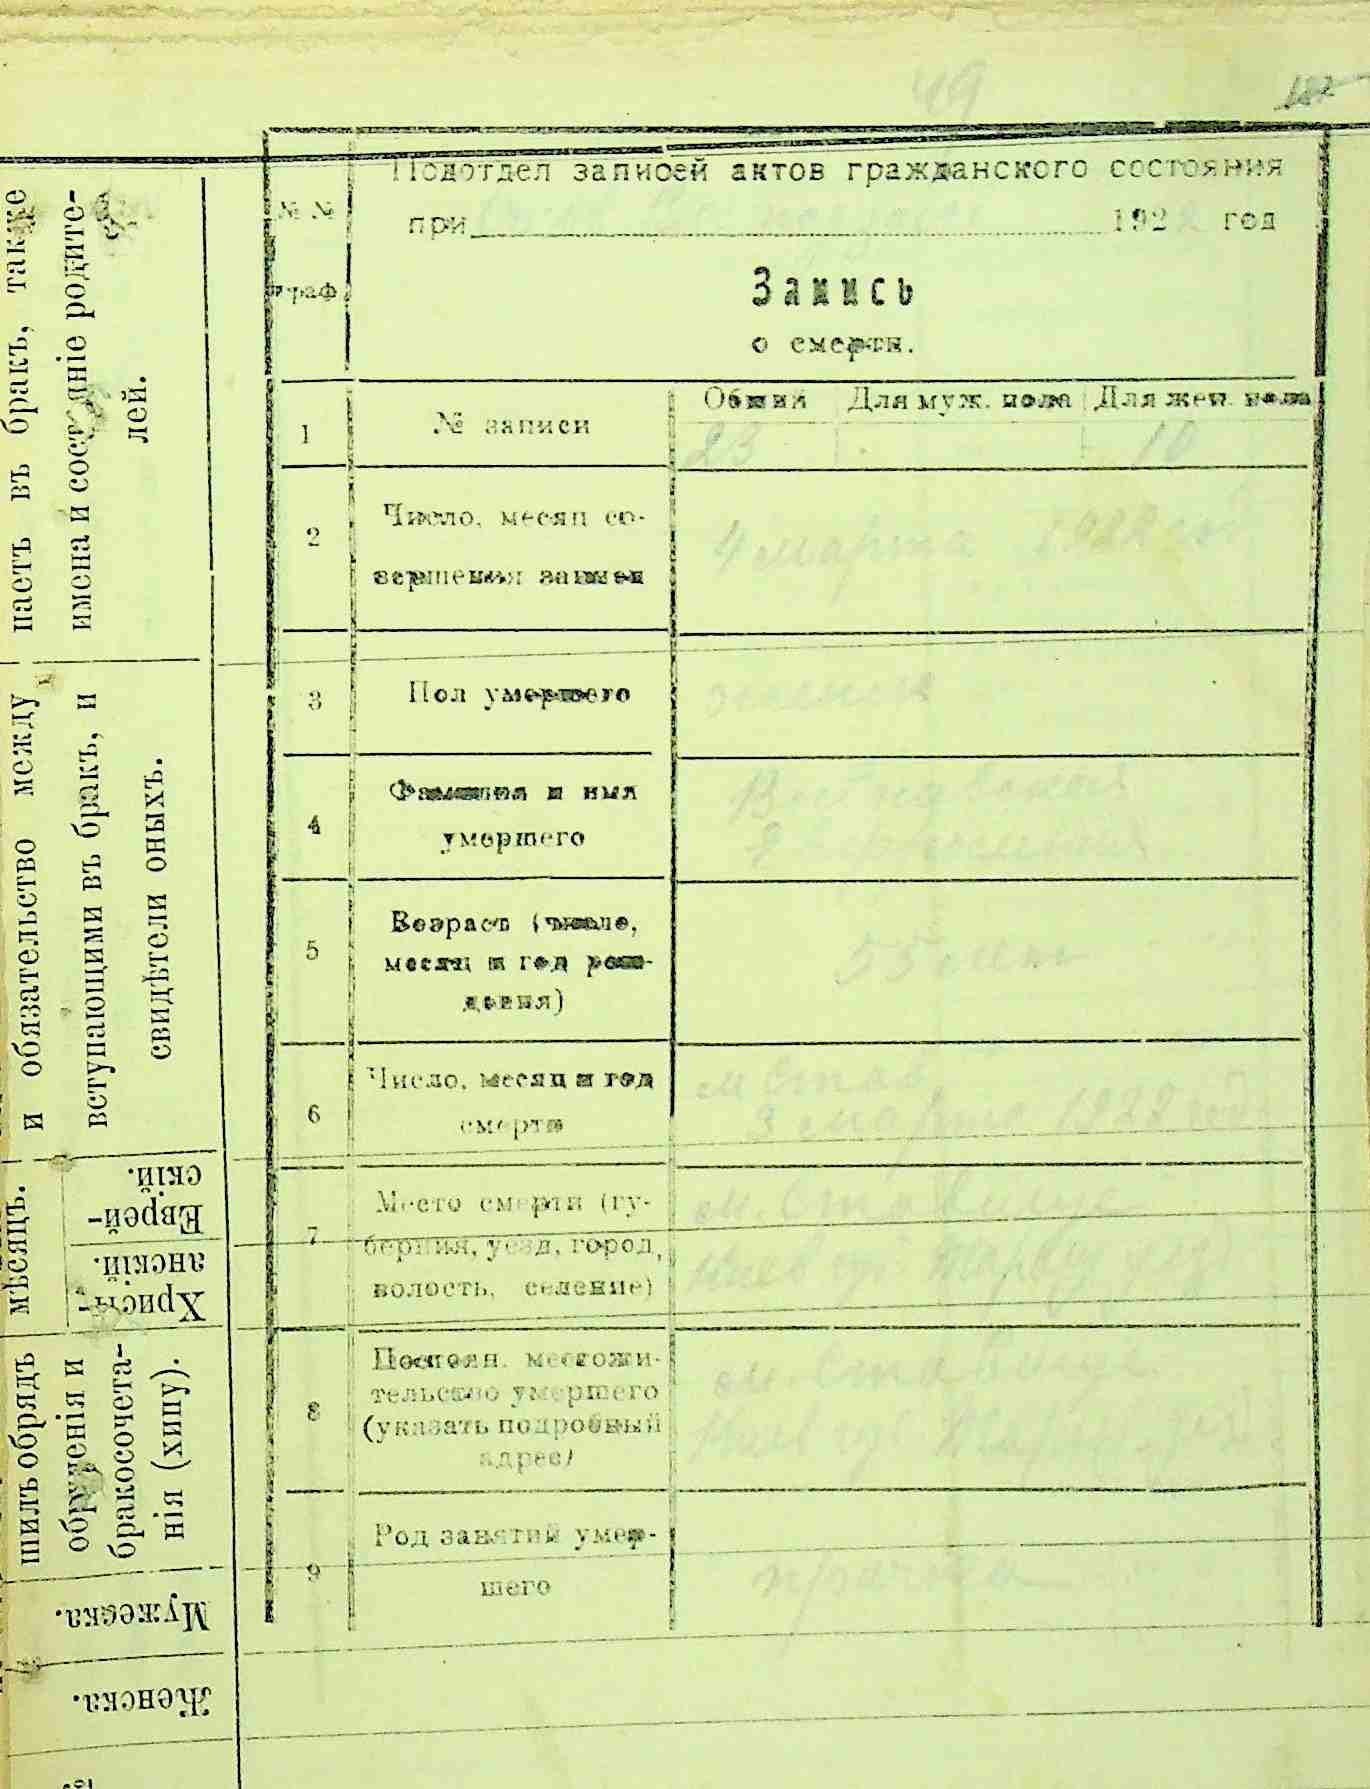 49
182
Подотдел записей актов гражданского состояния
при 1922 год
№ №
граф
Запись
о смерти.
1
№ записи
Общий
Для муж. пола
Для жен. пола
23
10
2
Число, месяц со-
вершения записи
4 марта 1922 год
3
Пол умершего
4
Фамилия и имя
умершего
5
Возраст (число,
месяц и год рож-
дения)
55 лет
6
Число, месяц и год
смерти
м Став
3 марта 1922 года
7
Место смерти (гу-
берния, уезд, город,
волость, селение)
м. Ставище
8
Постоян. местожи-
тельство умершего
(указать подробный
адрес)
м. Ставище
9
Род занятий умер-
шего
пасть въ бракъ, также
имена и состояніе родите-
лей.
и обязательство между
вступающими въ бракъ, и
свидѣтели оныхъ.
мѣсяцъ.
Христі-
анскій.
Еврей-
скій.
шилъ обрядъ
обрученія и
бракосочета-
нія (хипу).
Мужеска.
Женска.